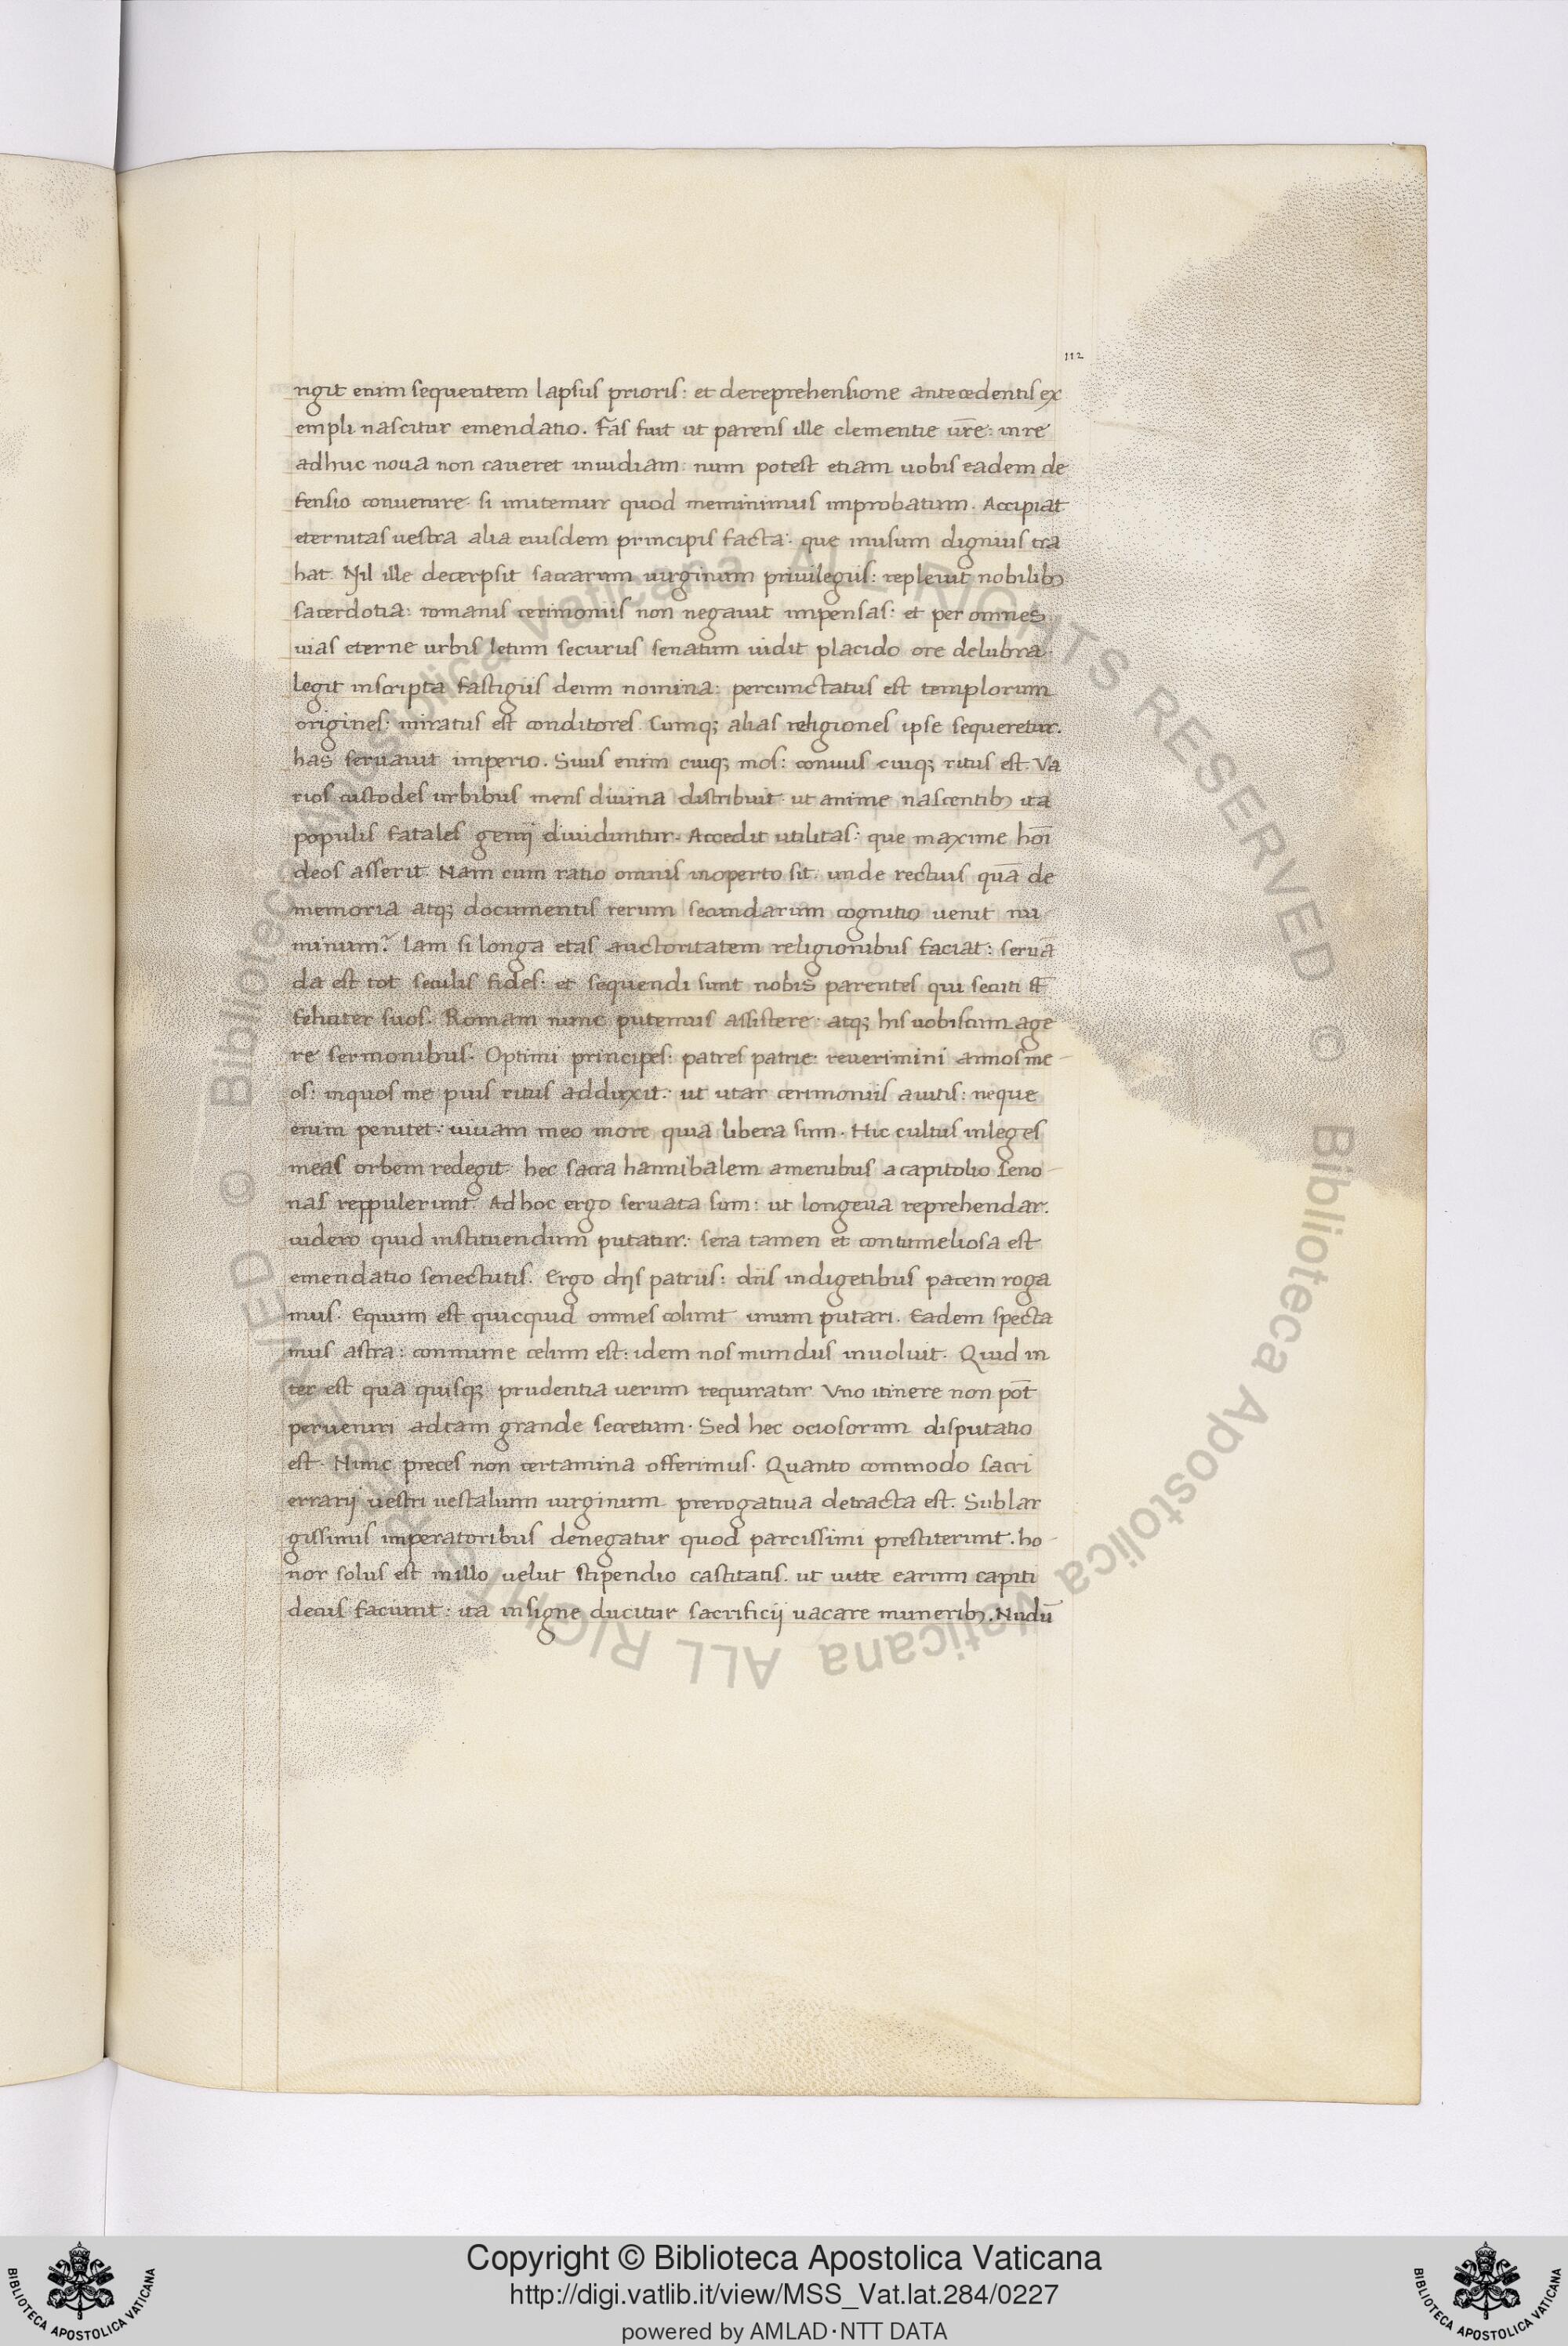 112
rigit enim sequentem lapsus prioris: et dereprehensione antecedentis ex
empli nascitur emendatio. Fas fuit ut parens ille clementie ur̄e: inre
adhuc noua non caueret inuidiam: num potest etiam uobis eadem de
fensio conuenire si imitemur quod meminimus improbatum. Accipiat
eternitas uestra alia eiusdem principis facta: que inusum dignius tra
hat. Nil ille decerpsit sacrarum uirginum priuilegiis: repleuit nobilibꝫ
sacerdotia: romanis cerimoniis non negauit impensas: et per omnes
uias eterne urbis letum securus senatum uidit placido ore delubra.
legit inscripta fastigiis deum nomina: percunctatus est templorum
origines: miratus est conditores. Cumqꝫ alias religiones ipse sequeretur.
has seruauit imperio. Suus enim cuiqꝫ mos: conuus cuiqꝫ ritus est. Va
rios custodes urbibus mens diuina distribuit. ut anime nascentibꝫ ita
populis fatales genij diuiduntur. Accedit utilitas: que maxime hoī
deos asserit. Nam cum ratio omnis inoperto sit. unde rectius quā de
memoria atqꝫ documentis rerum secundarum cognitio uenit nu
minum? Iam si longa etas auctoritatem religionibus faciat: seruā
da est tot seculis fides: et sequendi sunt nobis parentes qui secuti st̄
feliciter suos. Romam nunc putemus assistere: atqꝫ his uobiscum age
re sermonibus. Optimi principes: patres patrie: reuerimini annos me
os: inquos me pius ritus adduxit: ut utar cerimoniis auitis: neque
enim penitet: uiuam meo more quia libera sum. Hic cultus inleges
meas orbem redegit. hec sacra hannibalem amenibus acapitolio seno
nas reppulerunt. Adhoc ergo seruata sum: ut longeua reprehendar.
uidero quid instituendum putatur: sera tamen et contumeliosa est
emendatio senectutis. Ergo dijs patriis: diis indigetibus pacem roga
mus. Equum est quicquid omnes colunt unum putari. Eadem specta
mus astra: commune celum est: idem nos mundus inuoluit. Quid in
ter est qua quisqꝫ prudentia uerum requiratur. Vno itinere non pōt
perueniri adtam grande secretum. Sed hec ociosorum disputatio
est. Nunc preces non certamina offerimus. Quanto commodo sacri
errarij uestri uestalium uirginum prerogatiua detracta est. Sub lar
gissimis imperatoribus denegatur quod parcissimi prestiterunt. ho
nor solus est in illo uelut stipendio castitatis. ut uitte earum capiti
decus faciunt: ita insigne ducitur sacrificij uacare muneribꝫ. Nudū
© Biblioteca Apostolica Vaticana ALL RIGHTS RESERVED
© Biblioteca Apostolica Vaticana ALL RIGHTS RESERVED
Copyright © Biblioteca Apostolica Vaticana
http://digi.vatlib.it/view/MSS_Vat.lat.284/0227
powered by AMLAD·NTT DATA
BIBLIOTECA APOSTOLICA VATICANA
BIBLIOTECA APOSTOLICA VATICANA